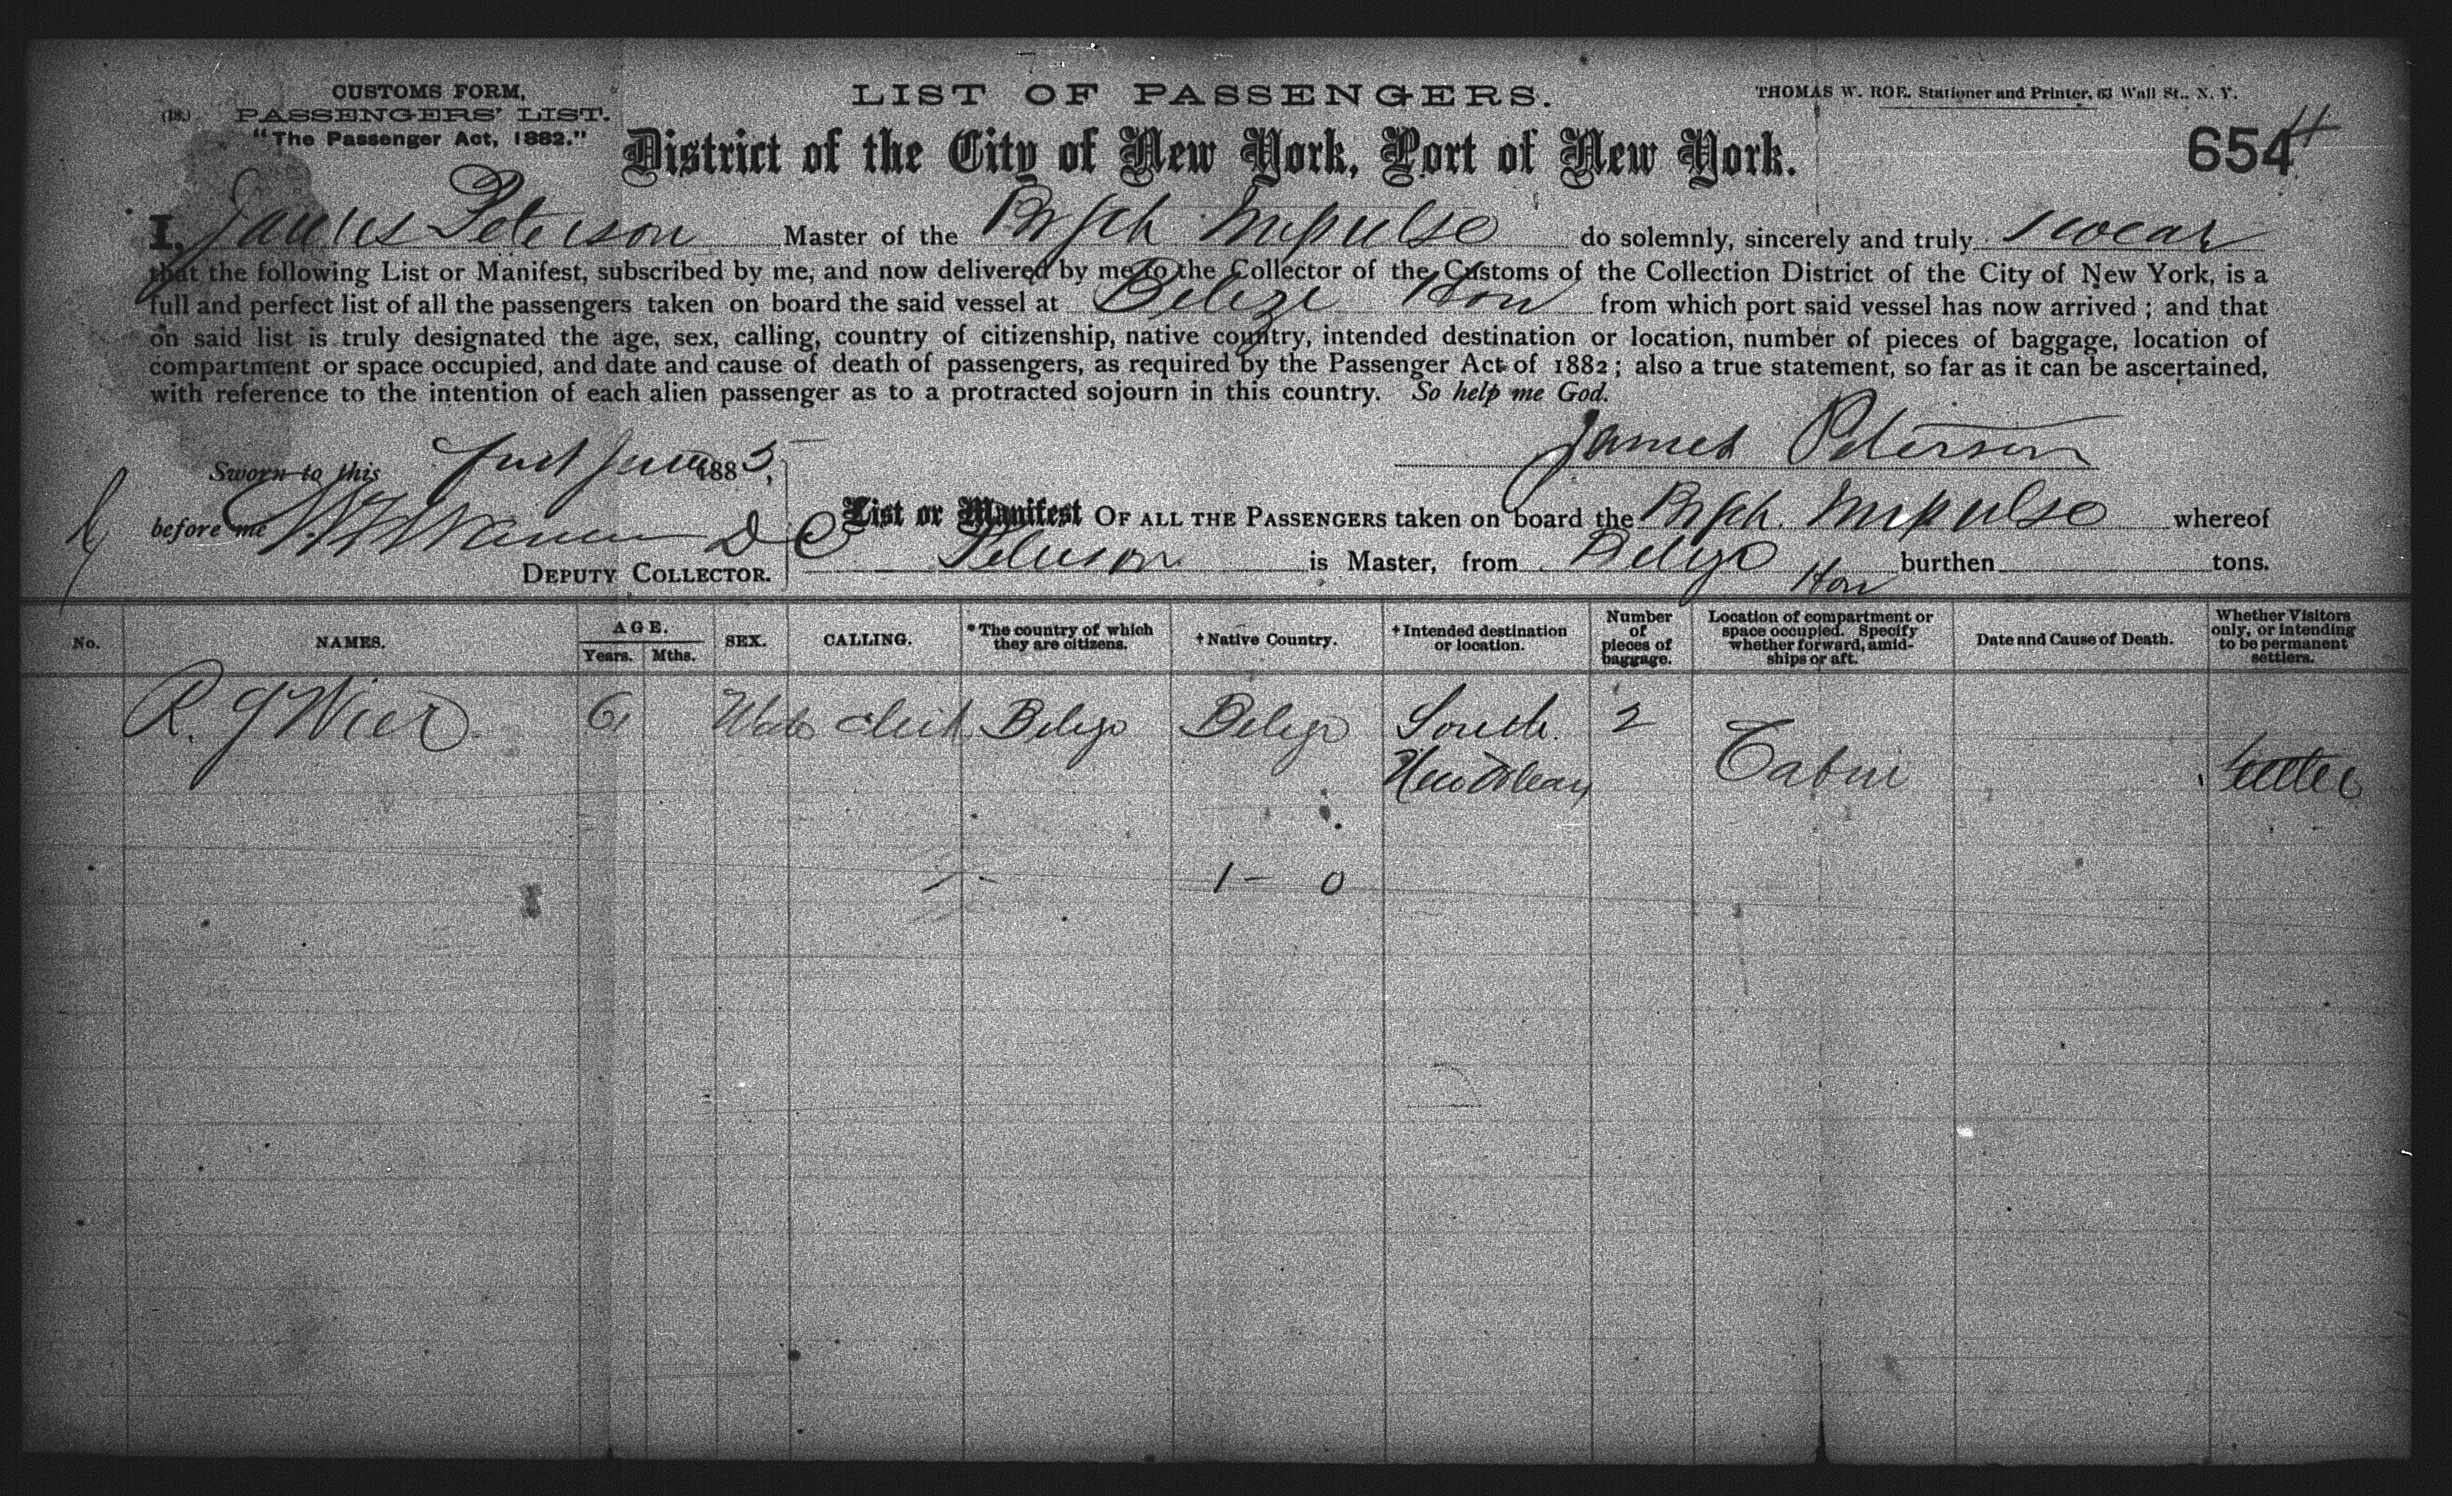 CUSTOMS FORM,
(18.) PASSENGERS' LIST.
"The Passenger Act, 1882."
LIST OF PASSENGERS.
THOMAS W. ROE. Stationer and Printer, 63 Wall St., N. Y.
District of the City of New York, Port of New York.
654
I, James Peterson Master of the Br Sch Impulse do solemnly, sincerely and truly swear
that the following List or Manifest, subscribed by me, and now delivered by me to the Collector of the Customs of the Collection District of the City of New York, is a
full and perfect list of all the passengers taken on board the said vessel at Belize Hon from which port said vessel has now arrived ; and that
on said list is truly designated the age, sex, calling, country of citizenship, native country, intended destination or location, number of pieces of baggage, location of
compartment or space occupied, and date and cause of death of passengers, as required by the Passenger Act of 1882 ; also a true statement, so far as it can be ascertained,
with reference to the intention of each alien passenger as to a protracted sojourn in this country. So help me God.
James Peterson
Sworn to this first June 1883,
before me D C
DEPUTY COLLECTOR.
List or Manifest OF ALL THE PASSENGERS taken on board the Br Sch. Impulse whereof
Peterson is Master, from Belize Hon burthen tons.
No. NAMES. AGE. Years. Mths. SEX. CALLING. *The country of which they are citizens. †Native Country. †Intended destination or location. Number of pieces of baggage. Location of compartment or space occupied. Specify whether forward, amidships or aft. Date and Cause of Death. Whether Visitors only, or intending to be permanent settlers.
R. J Wier Belize Belize South. 2
New Orleans Cabin
1 - 0